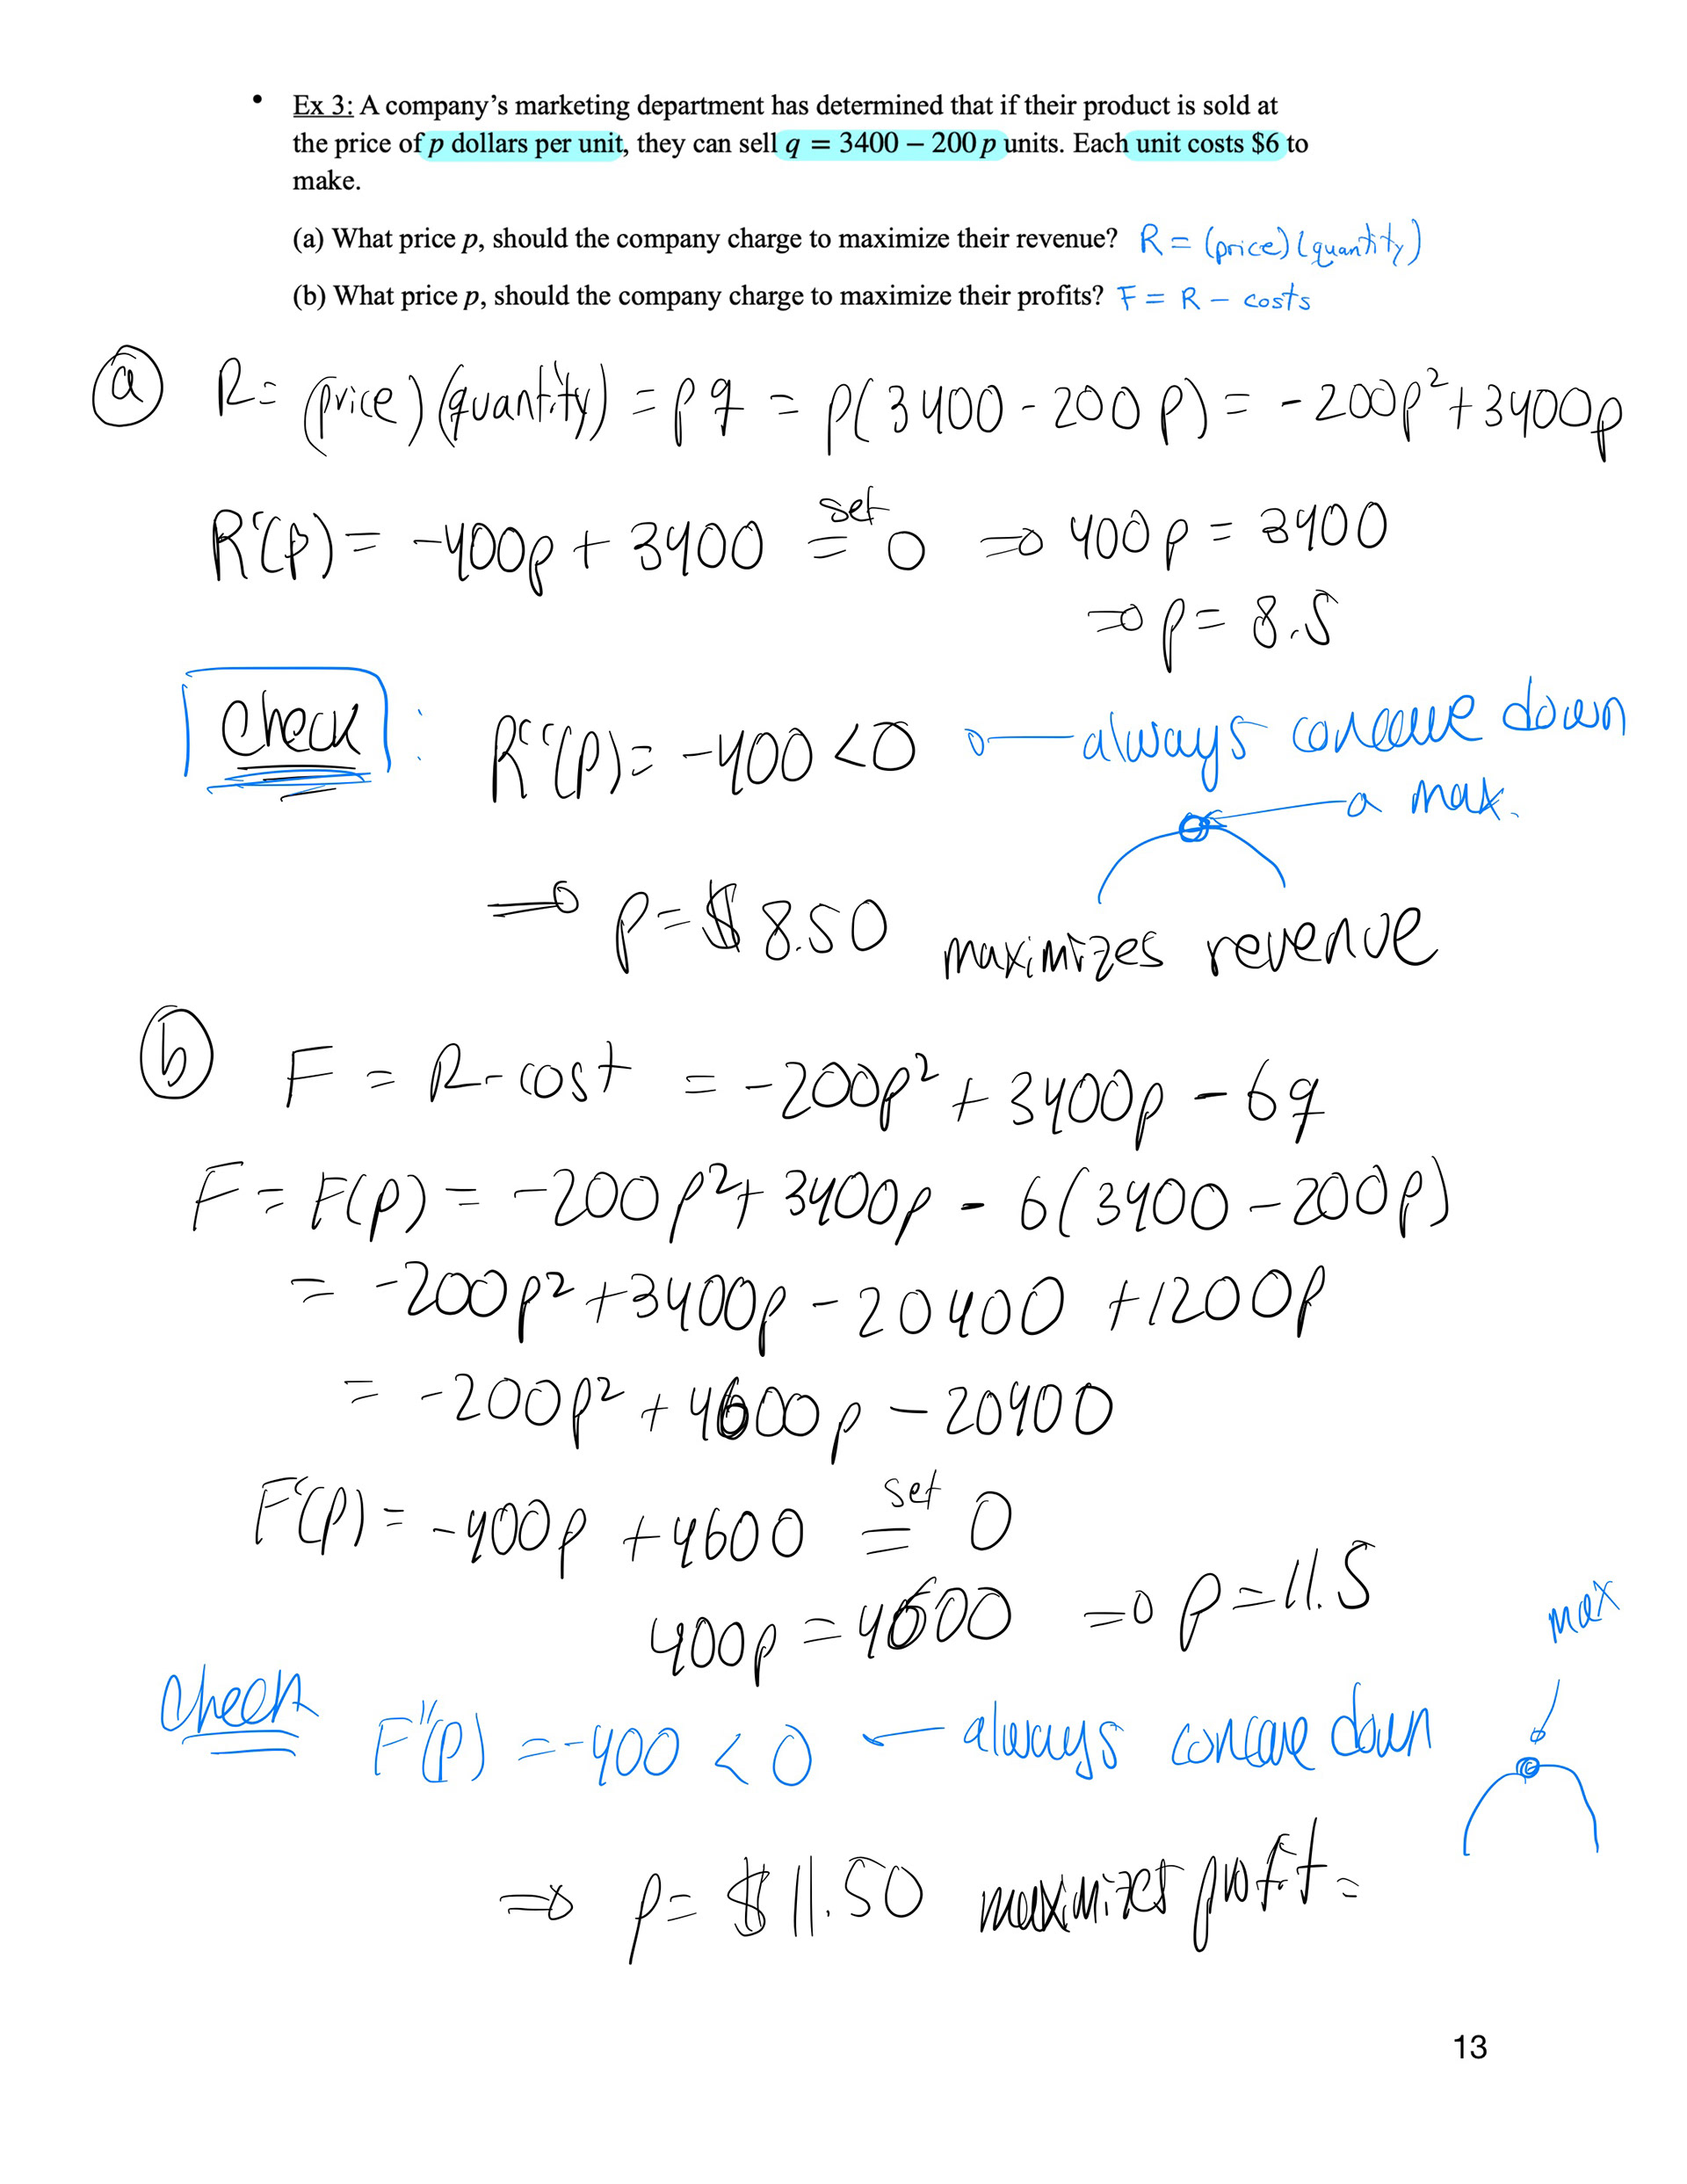 • Ex 3: A company's marketing department has determined that if their product is sold at
the price of p dollars per unit, they can sell q = 3400 − 200 p units. Each unit costs $6 to
make.
(a) What price p, should the company charge to maximize their revenue? R = (price)(quantity)
(b) What price p, should the company charge to maximize their profits? F = R − costs
(a) R = (price)(quantity) = pq = p(3400 - 200p) = -200p² + 3400p
R'(p) = -400p + 3400 set = 0 ⇒ 400p = 3400
⇒ p = 8.5
Check : R''(p) = -400 < 0 ← always concave down
a max.
⇒ p = $8.50 maximizes revenue
(b) F = R - cost = -200p² + 3400p - 6q
F = F(p) = -200p² + 3400p - 6(3400 - 200p)
= -200p² + 3400p - 20400 + 1200p
= -200p² + 4600p - 20400
F'(p) = -400p + 4600 set = 0
400p = 4600 ⇒ p = 11.5
max
Check F''(p) = -400 < 0 ← always concave down
⇒ p = $11.50 maximizes profit =
13